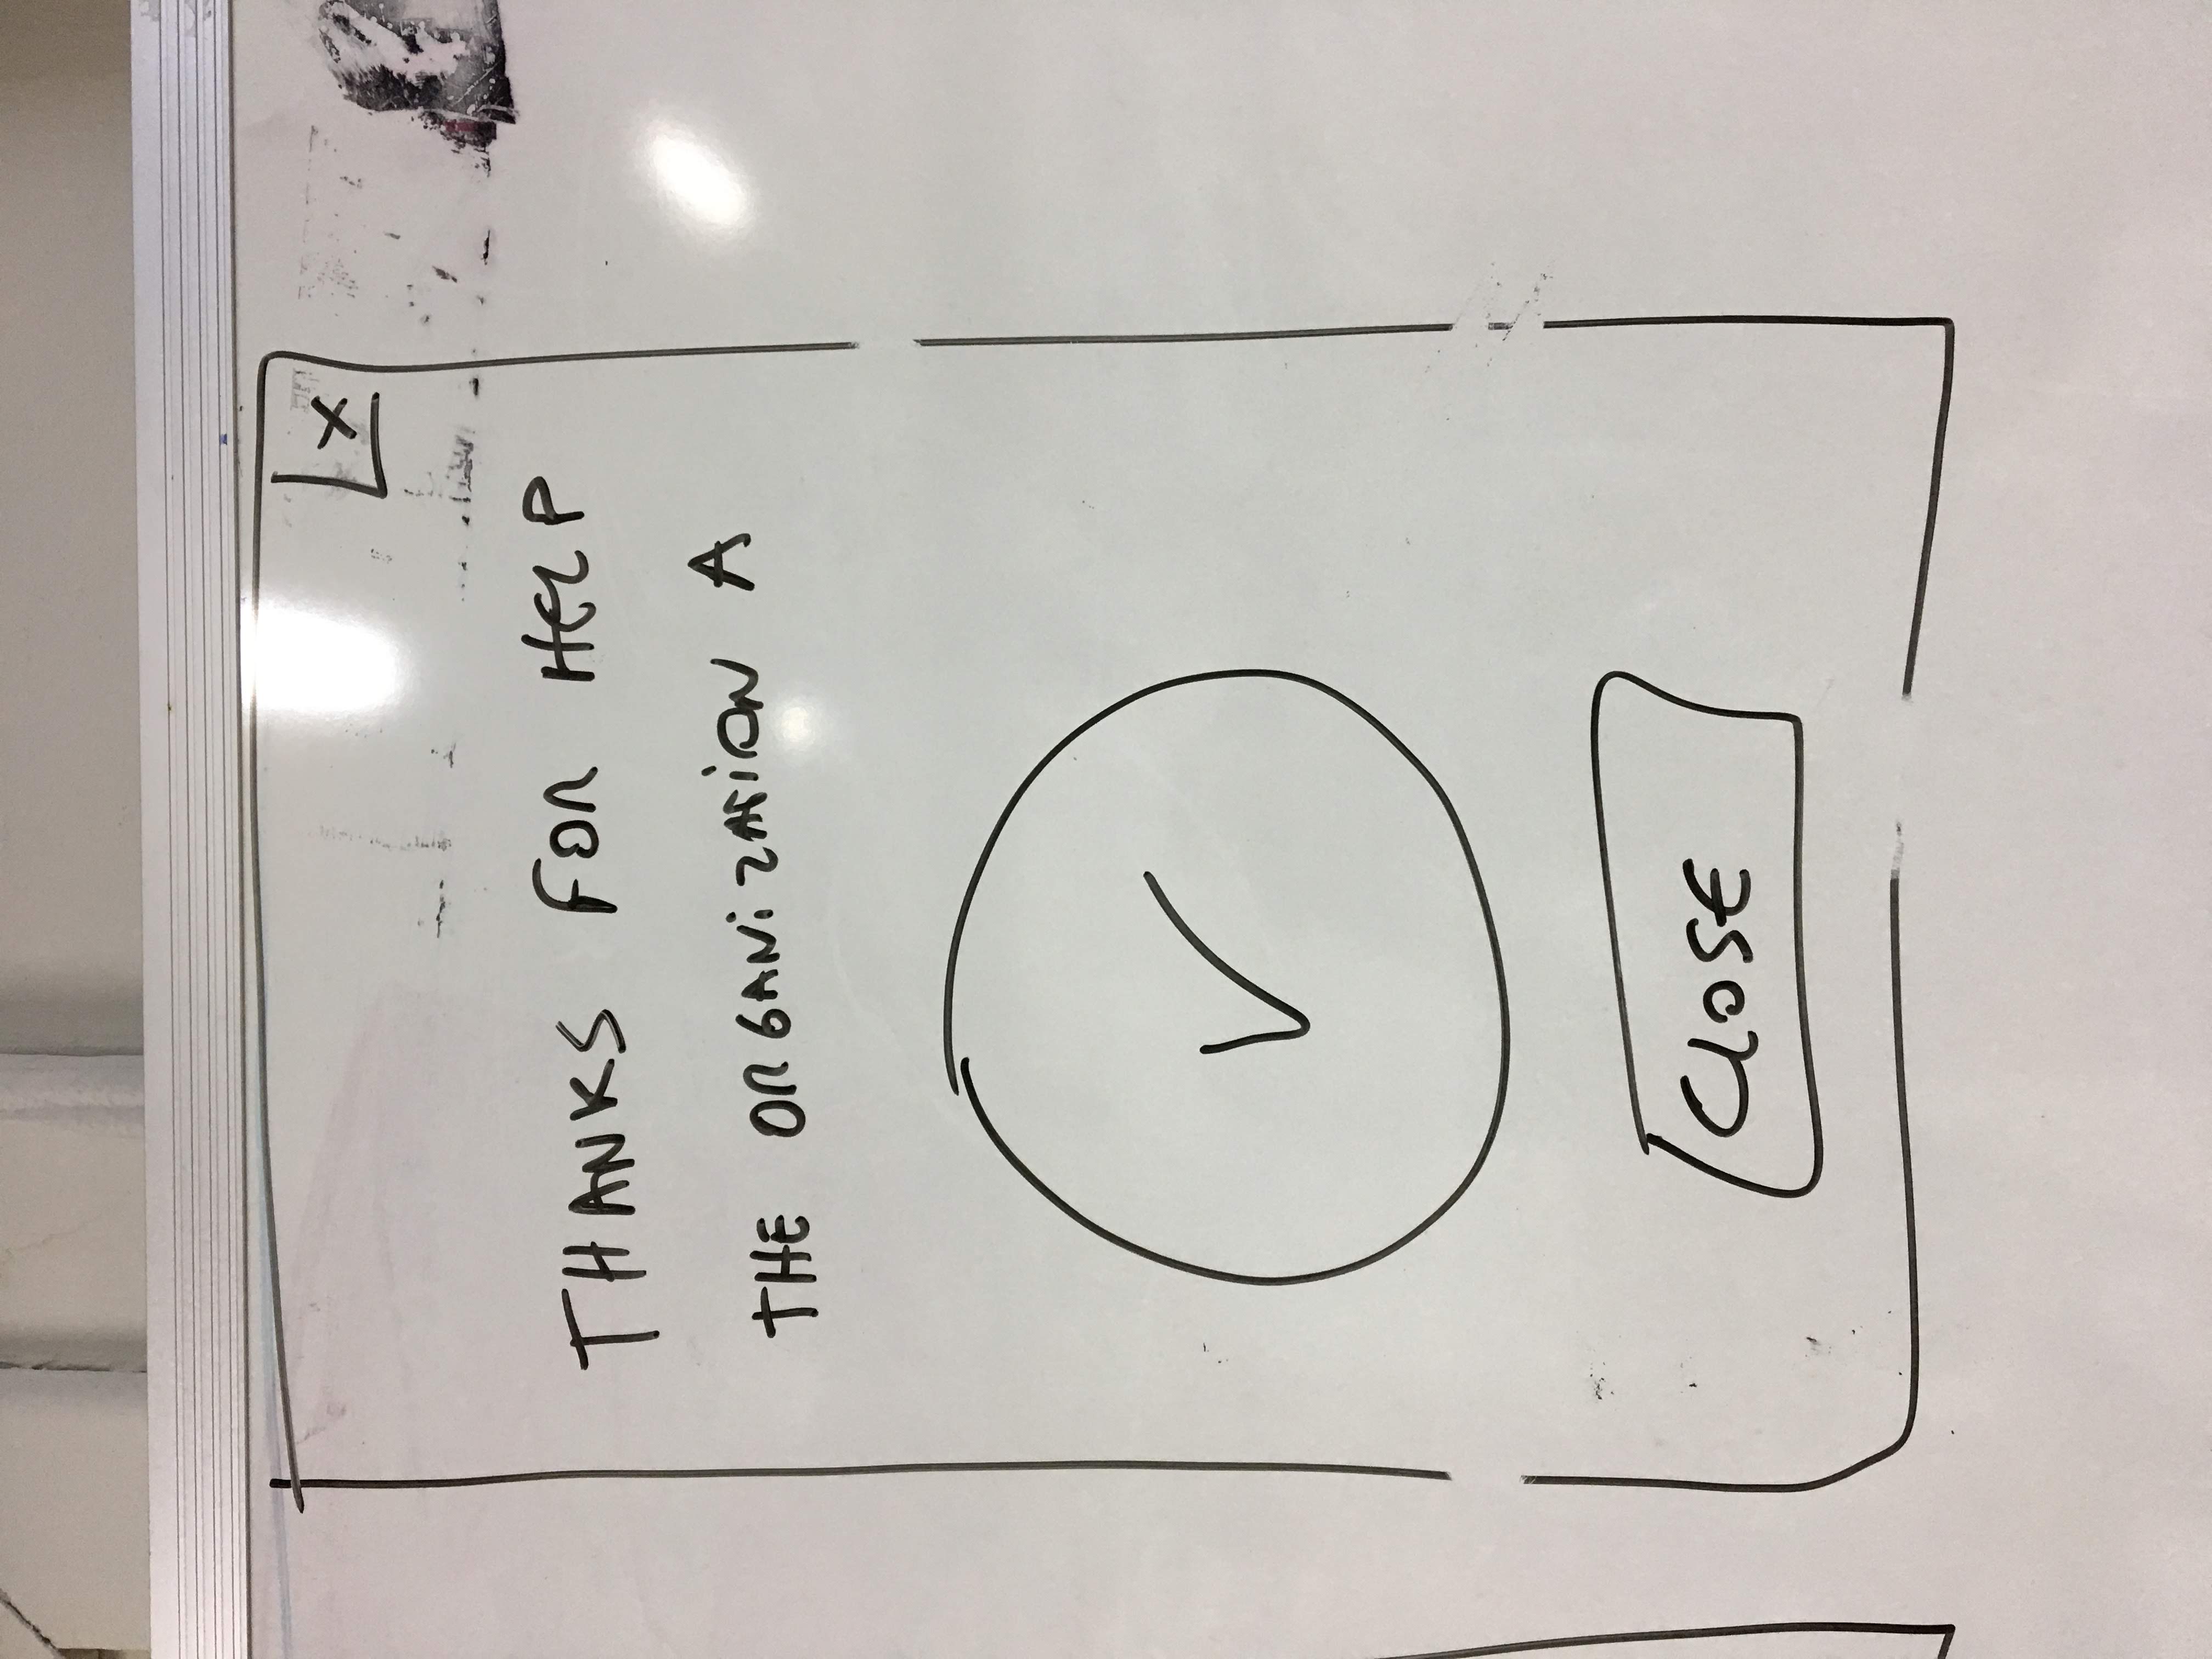 X
THANKS FOR HELP
THE ORGANiZATiON A
CLOSE